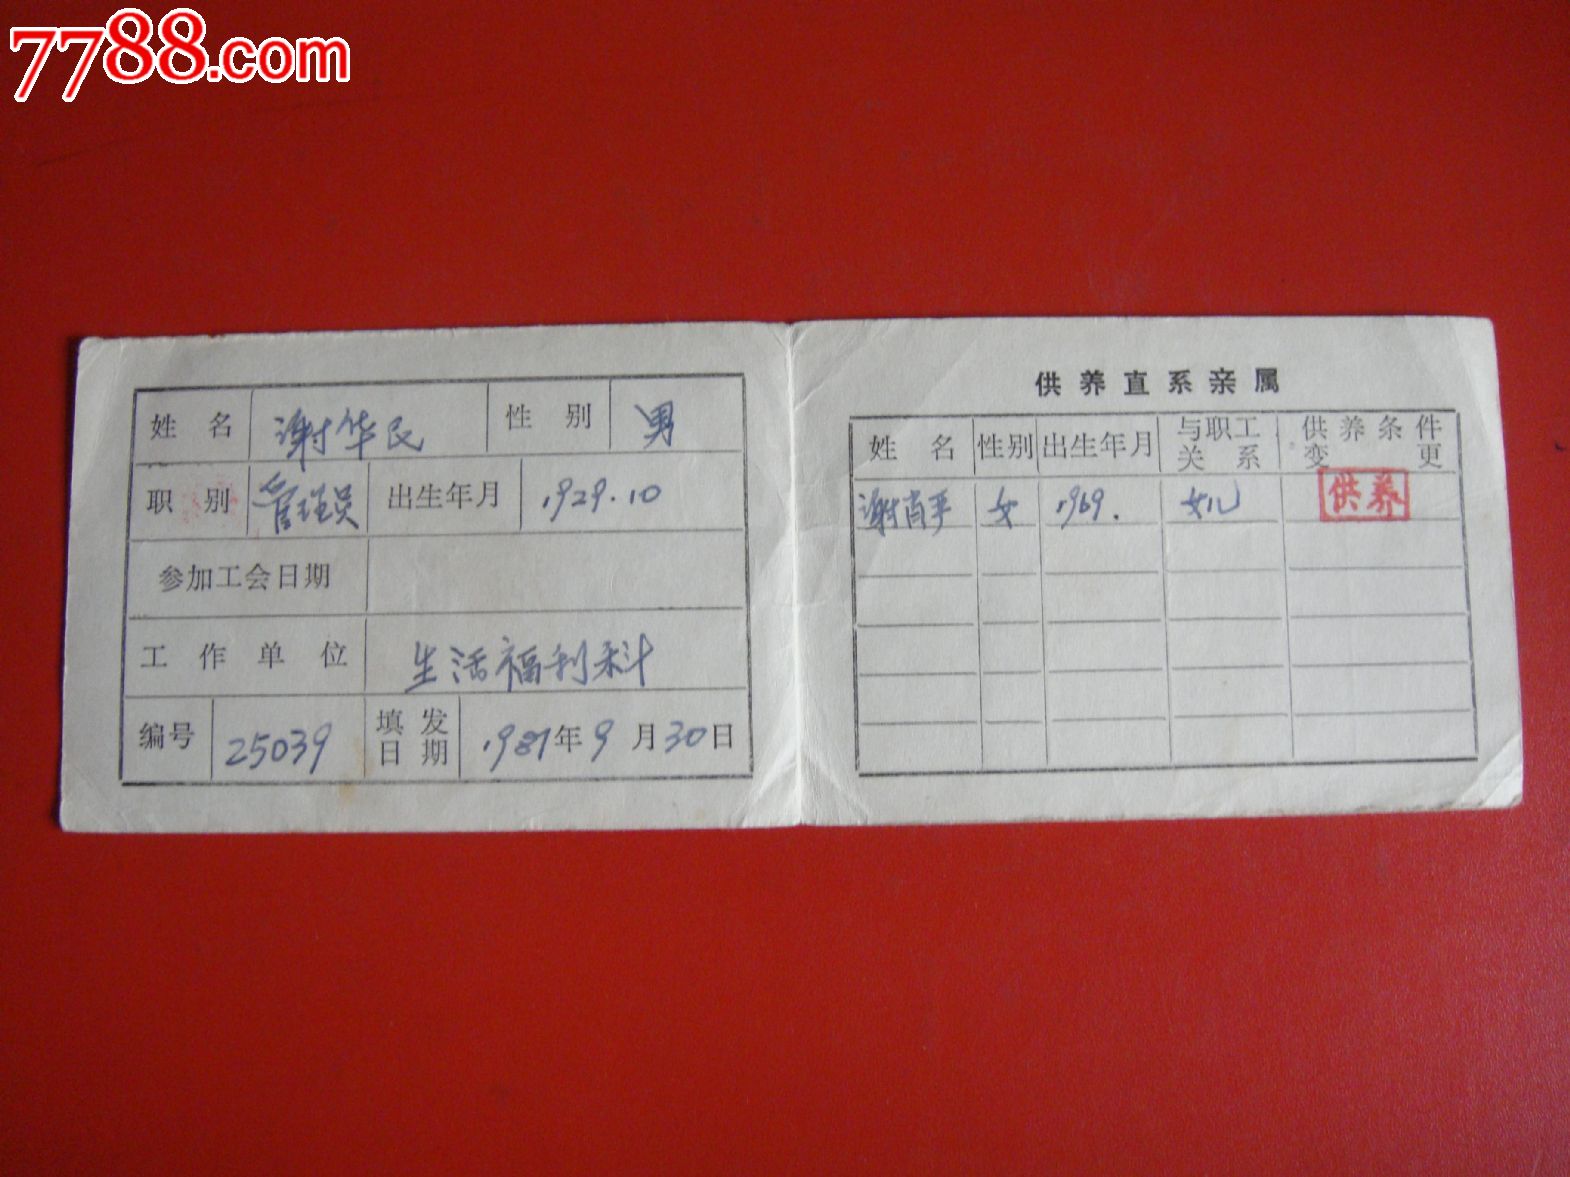 7788.com
姓名 谢华民 性别 男
职别 管理员 出生年月 1929.10
参加工会日期
工作单位 生活福利科
编号 25039 填发日期 1987年9月30日
供养直系亲属
姓名 性别 出生年月 与职工关系 供养条件变更
谢肖平 女 1969. 女儿 供养